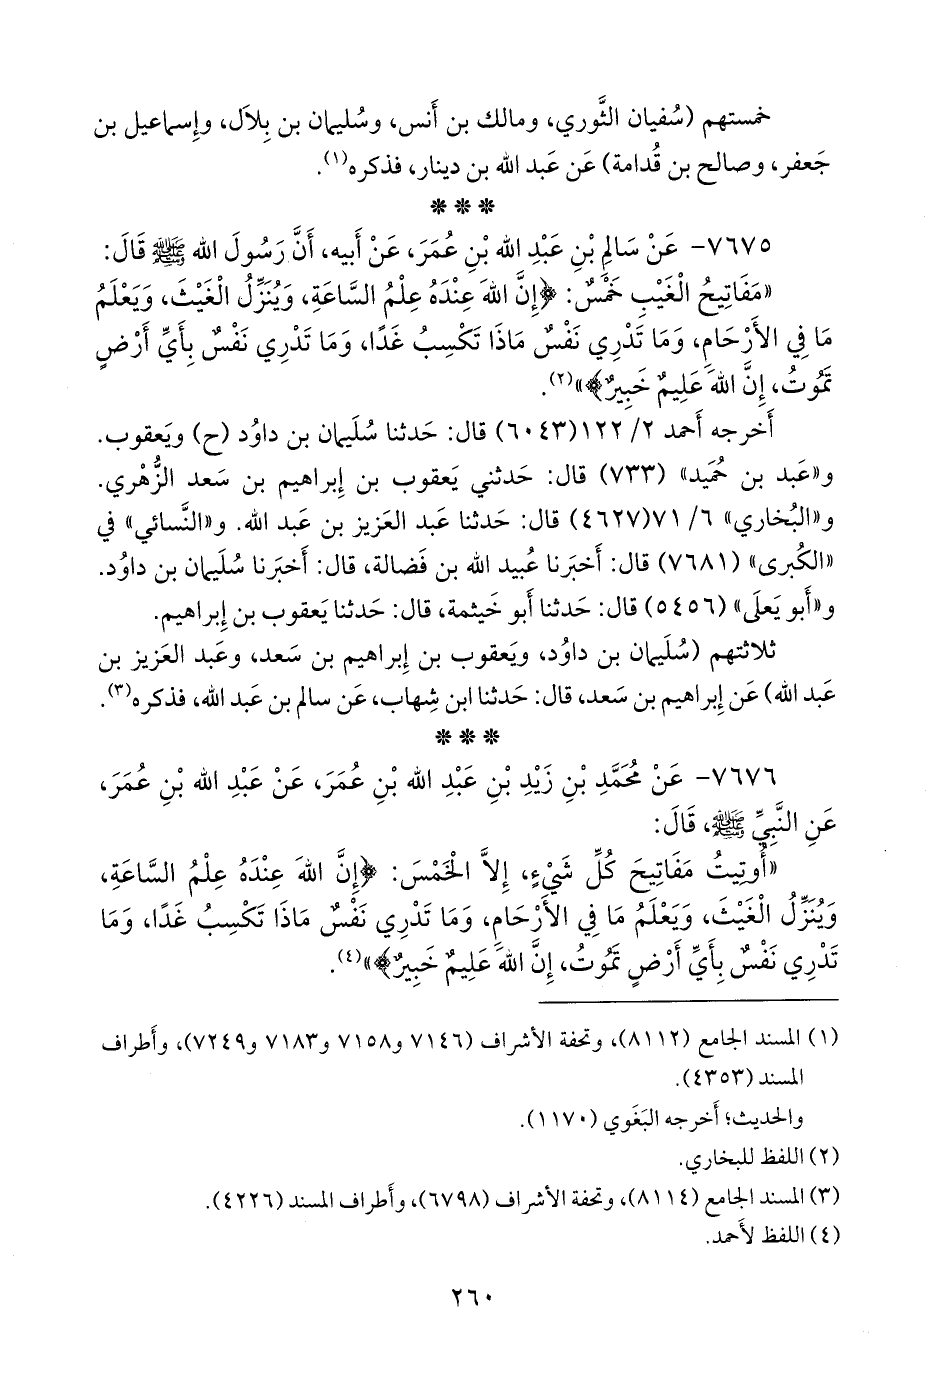 خمستهم (سُفيان الثَّوري، ومالك بن أَنس، وسُليمان بن بِلاَل، وإِسماعيل بن
جَعفر، وصالح بن قُدامة) عَن عَبد الله بن دينار، فذكره(١).
* * *
٧٦٧٥- عَنْ سَالِمِ بْنِ عَبْدِ الله بْنِ عُمَرَ، عَنْ أَبيه، أَنَّ رَسُولَ الله ﷺ قَالَ:
«مَفَاتِيحُ الْغَيْبِ خَمْسٌ: ﴿إِنَّ اللهَ عِنْدَهُ عِلْمُ السَّاعَةِ، وَيُنَزِّلُ الْغَيْثَ، وَيَعْلَمُ
مَا فِي الأَرْحَامِ، وَمَا تَدْرِي نَفْسٌ مَاذَا تَكْسِبُ غَدًا، وَمَا تَدْرِي نَفْسٌ بِأَيِّ أَرْضٍ
تَمُوتُ، إِنَّ اللهَ عَلِيمٌ خَبِيرٌ﴾»(٢).
أَخرجه أَحمد ٢/ ١٢٢(٦٠٤٣) قال: حَدثنا سُليمان بن داوُد (ح) ويَعقوب.
و«عَبد بن حُميد» (٧٣٣) قال: حَدثني يَعقوب بن إِبراهيم بن سَعد الزُّهْري.
و«البُخاري» ٦/ ٧١(٤٦٢٧) قال: حَدثنا عَبد العَزيز بن عَبد الله. و«النَّسائي» في
«الكُبرى» (٧٦٨١) قال: أَخبَرنا عُبيد الله بن فَضالة، قال: أَخبَرنا سُليمان بن داوُد.
و«أَبو يَعلَى» (٥٤٥٦) قال: حَدثنا أَبو خَيثمة، قال: حَدثنا يَعقوب بن إِبراهيم.
ثلاثتهم (سُليمان بن داوُد، ويَعقوب بن إِبراهيم بن سَعد، وعَبد العَزيز بن
عَبد الله) عَن إِبراهيم بن سَعد، قال: حَدثنا ابن شِهاب، عَن سالم بن عَبد الله، فذكره(٣).
* * *
٧٦٧٦- عَنْ مُحَمَّدِ بْنِ زَيْدِ بْنِ عَبْدِ الله بْنِ عُمَرَ، عَنْ عَبْدِ الله بْنِ عُمَرَ،
عَنِ النَّبِيِّ ﷺ، قَالَ:
«أُوتِيتُ مَفَاتِيحَ كُلِّ شَيْءٍ، إِلاَّ الْخَمْسَ: ﴿إِنَّ اللهَ عِنْدَهُ عِلْمُ السَّاعَةِ،
وَيُنَزِّلُ الْغَيْثَ، وَيَعْلَمُ مَا فِي الأَرْحَامِ، وَمَا تَدْرِي نَفْسٌ مَاذَا تَكْسِبُ غَدًا، وَمَا
تَدْرِي نَفْسٌ بِأَيِّ أَرْضٍ تَمُوتُ، إِنَّ اللهَ عَلِيمٌ خَبِيرٌ﴾»(٤).
(١) المسند الجامع (٨١١٢)، وتحفة الأشراف (٧١٤٦ و٧١٥٨ و٧١٨٣ و٧٢٤٩)، وأَطراف
المسند (٤٣٥٣).
والحديث؛ أَخرجه البَغَوي (١١٧٠).
(٢) اللفظ للبخاري.
(٣) المسند الجامع (٨١١٤)، وتحفة الأشراف (٦٧٩٨)، وأَطراف المسند (٤٢٢٦).
(٤) اللفظ لأَحمد.
٢٦٠